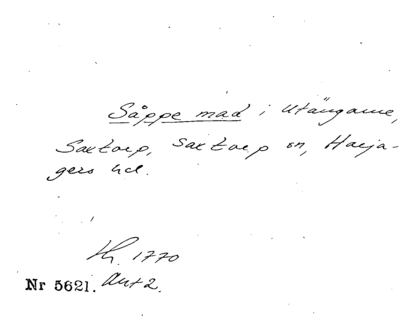 Såppe mad i Utängarne,
Saxtorp, Saxtorp sn, Harja-
gers hd.
Kh. 1770
Nr 5621. Akt 2.